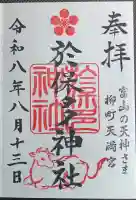 奉拝
富山の天神さま
柳町天満宮
於保多神社
令和八年八月十三日